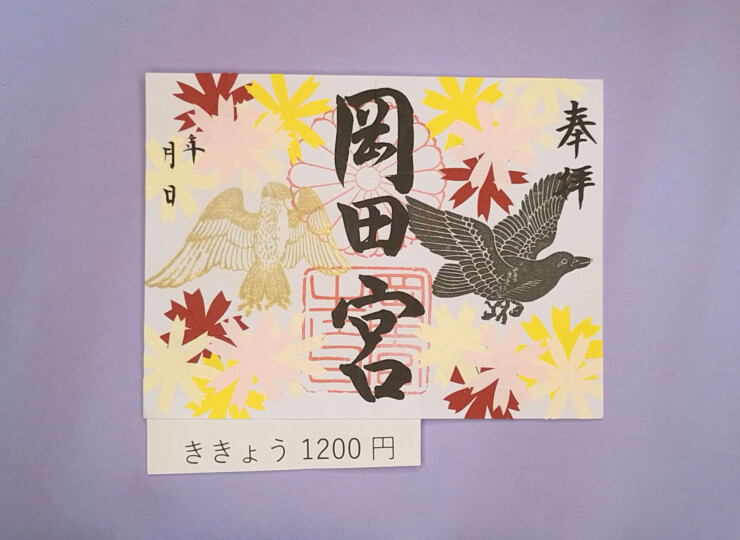 奉拝
岡田宮
年
月
日
ききょう 1200 円